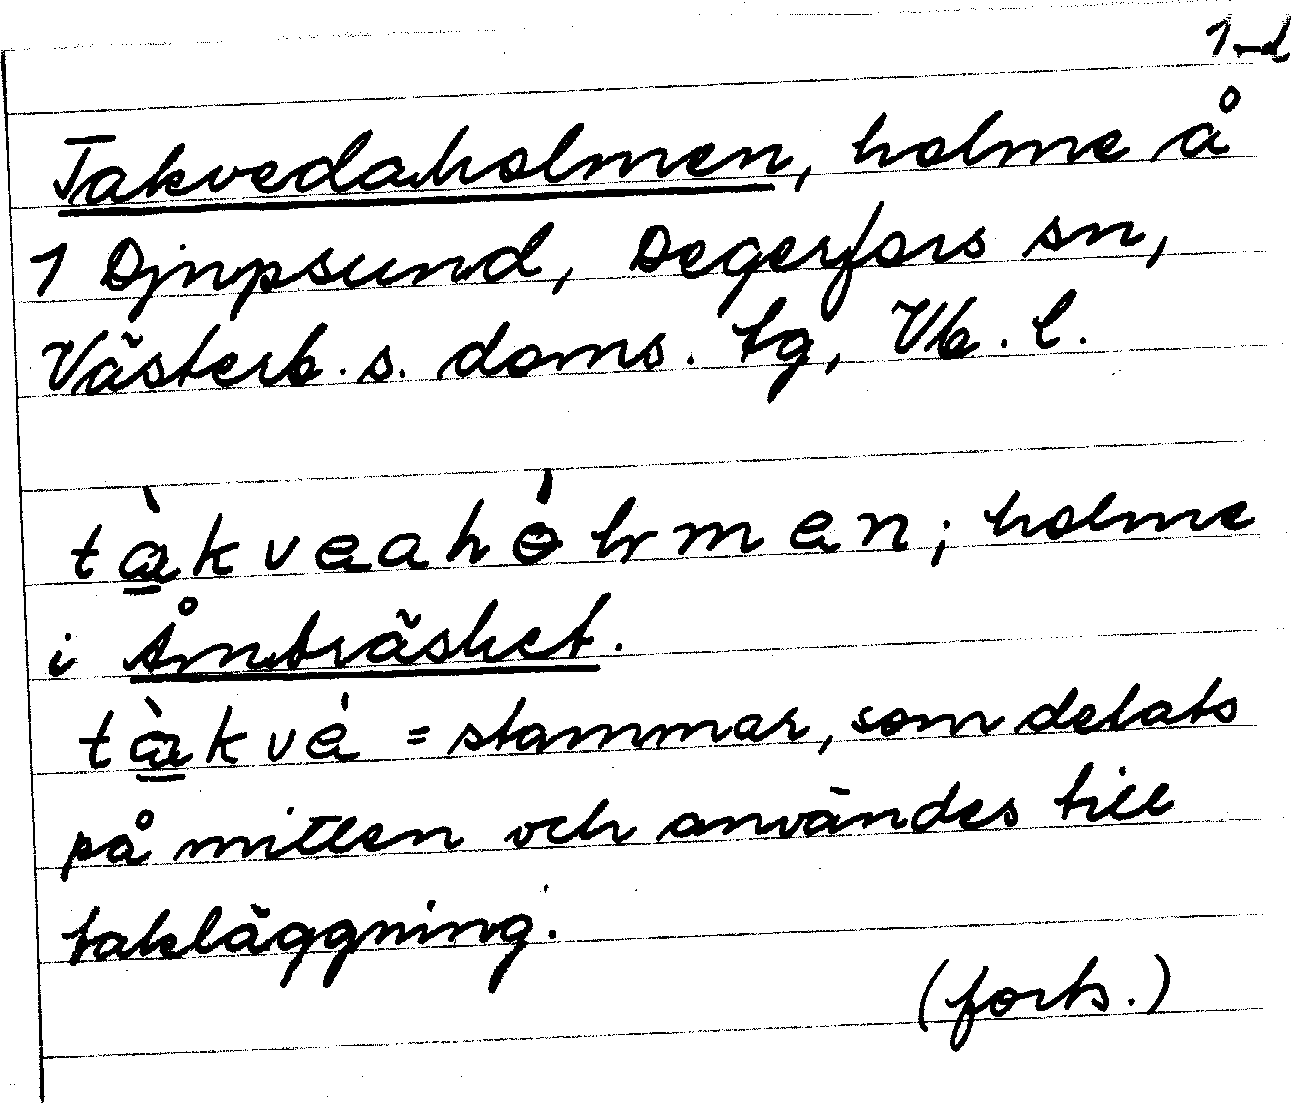 1-d
Takvedaholmen, holme å
1 Djupsund, Degerfors sn,
Västerb. s. doms. tg, Vb. l.
tàkveahólmen; holme
i Åmträsket.
tàkvé = stammar, som delats
på mitten och användes till
takläggning.
(forts.)